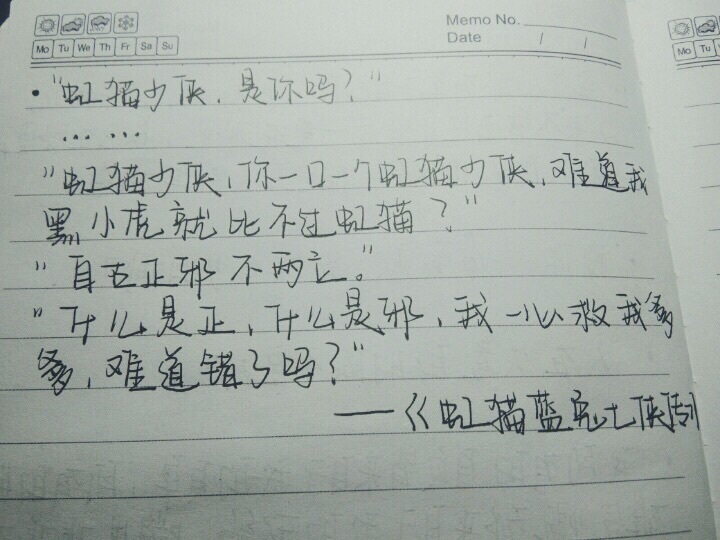 Memo No.
Mo Tu We Th Fr Sa Su
Date / /
Mo Tu
·"虹猫少侠,是你吗?"
……
"虹猫少侠,你一口一个虹猫少侠,难道我
黑小虎就比不过虹猫?"
"自古正邪不两立。"
"什么是正,什么是邪,我一心救我爹
爹,难道错了吗?"
——《虹猫蓝兔七侠传